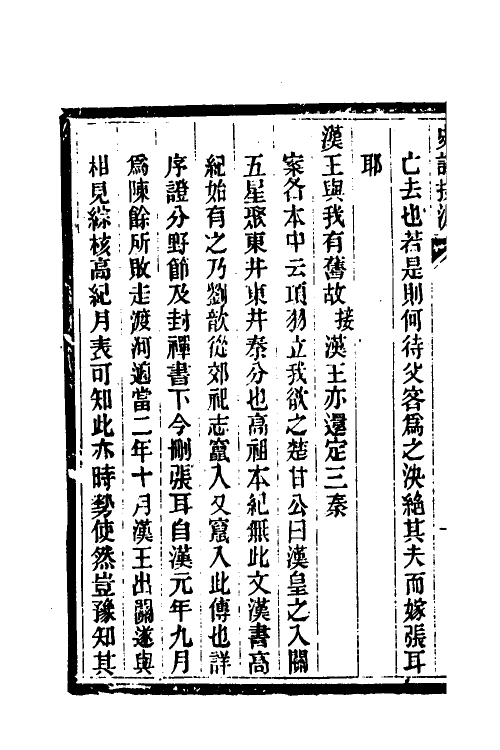 亡去也若是則何待父客爲之決絕其夫而嫁張耳
耶
漢王與我有舊故接漢王亦還定三秦
案各本中云項羽立我欲之楚甘公曰漢皇之入關
五星聚東井東井秦分也高祖本紀無此文漢書高
紀始有之乃劉歆從郊祀志竄入又竄入此傳也詳
序證分野節及封禪書下今刪張耳自漢元年九月
爲陳餘所敗走渡河適當二年十月漢王出關遂與
相見綜核高紀月表可知此亦時勢使然豈豫知其